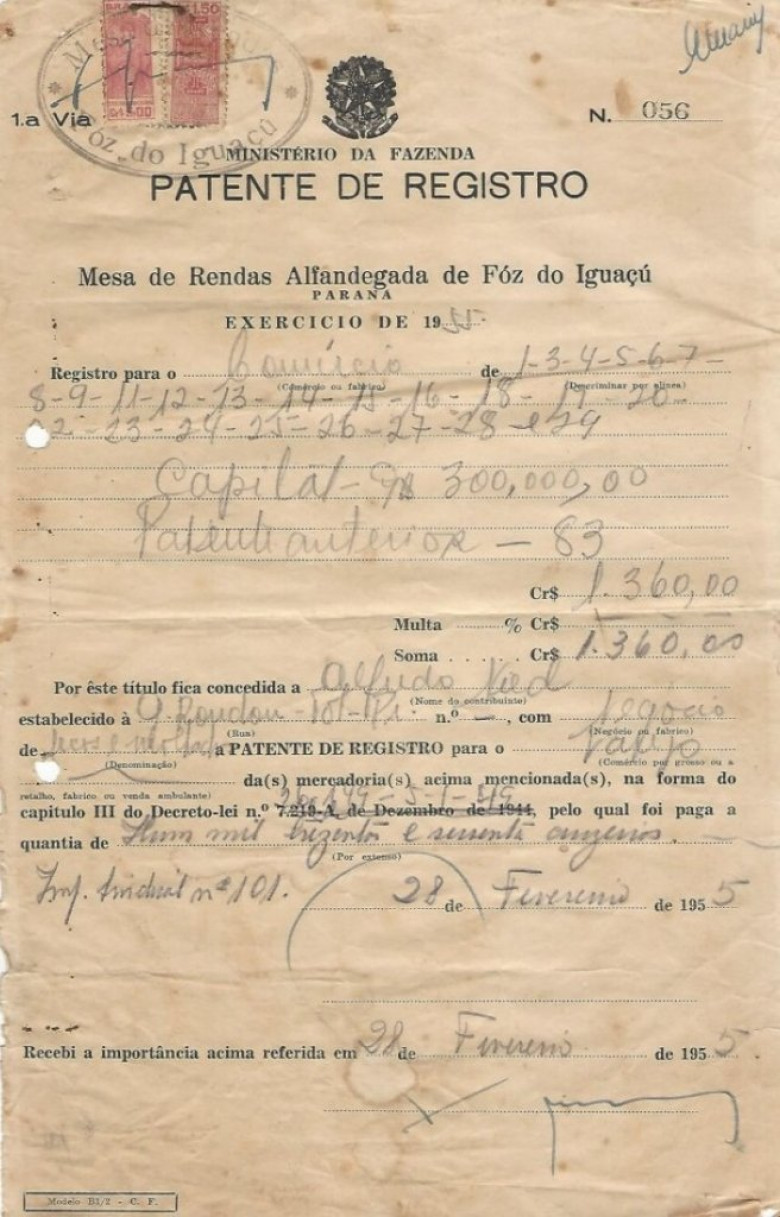 Mesa de Rendas
Fóz do Iguaçú
1.a Via
N. 056
MINISTÉRIO DA FAZENDA
PATENTE DE REGISTRO
Mesa de Rendas Alfandegada de Fóz do Iguaçú
PARANÁ
EXERCICIO DE 1955
Registro para o Comércio de 1-3-4-5-6-7-
(Comércio ou fabrico) (Discriminar por alínea)
8-9-11-12-13-14-15-16-18-19-20-
22-23-24-25-26-27-28 e 29
Capital - Cr$ 300,000,00
Patente anterior - 83
Cr$ 1.360,00
Multa % Cr$
Soma . . . . Cr$ 1.360,00
Por êste título fica concedida a Alfredo Nied
(Nome do contribuinte)
estabelecido à n.º —, com Negócio
(Rua) (Negócio ou fabrico)
de a PATENTE DE REGISTRO para o Varejo
(Denominação) (Comércio por grosso ou a
da(s) mercadoria(s) acima mencionada(s), na forma do
retalho, fabrico ou venda ambulante)
capitulo III do Decreto-lei n.º 7.219-A, de Dezembro de 1944, pelo qual foi paga a
quantia de Hum mil trezentos e sessenta cruzeiros.
(Por extenso)
nº 101. 28 de Fevereiro de 1955
Recebi a importância acima referida em 28 de Fevereiro de 1955
Modelo B1/2 - C. F.